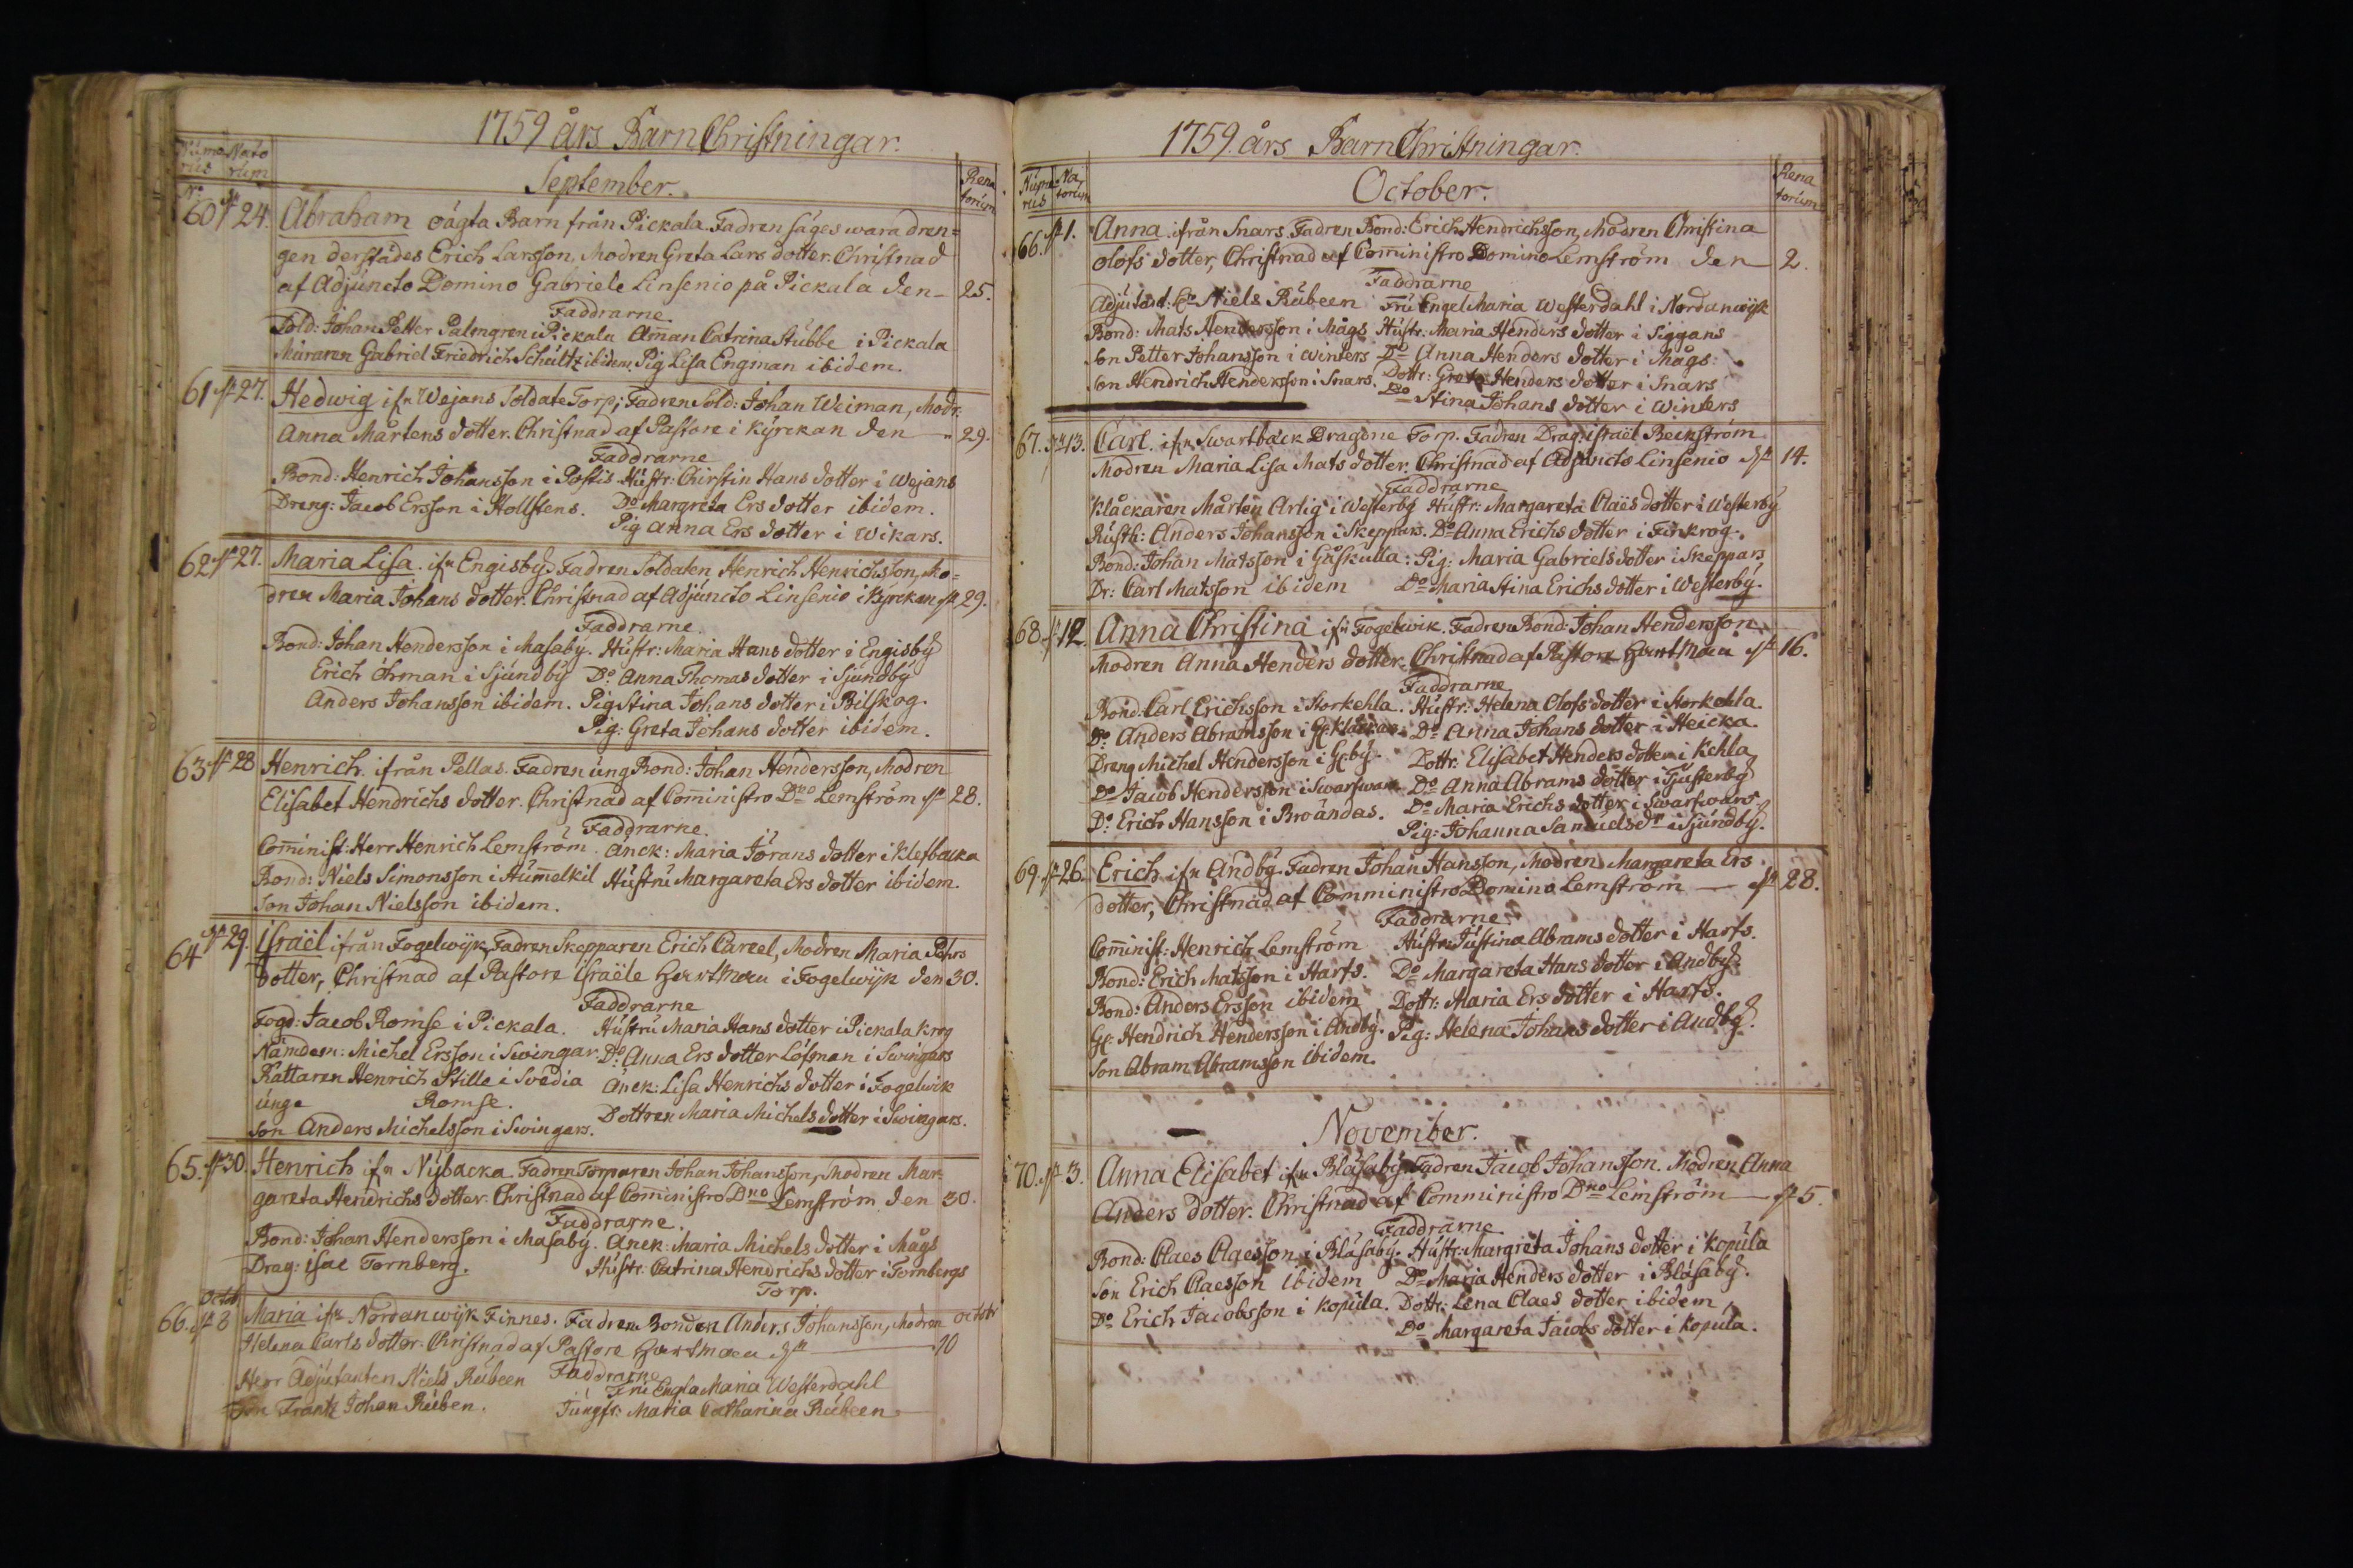 1759 års Barn Christningar.
Nume Nato
rus rum
September.
Rena
torum
N:
60 24. Abraham oägta Barn från Pickala. Fadren säges wara dren=
gen derstädes Erich Larsson, Modren Greta Lars dotter. Christnad
af Adjuncto Domino Gabriele Linsenio på Pickala den 25.
Faddrarne.
Sold: Johan Petter Palmgren i Pickala Amman Catrina Stubbe i Pickala
Muraren Gabriel Friedrich Schultz ibidem. Pig Lisa Engman ibidem.
61 27. Hedwig ifn Wejans Soldate Torp; Fadren Sold: Johan Weiman, Modr.
Anna Mårtens dotter. Christnad af Pastore i Kyrckan den 29.
Faddrarne
Bond: Henrich Johansson i Postis Hustr: Chirstin Hans dotter i Wejans
Dreng: Jacob Ersson i Hollstens. Do Margreta Ers dotter ibidem.
Pig Anna Ers dotter i Wikars.
62 27. Maria Lisa. ifn Engisby. Fadren Soldaten Henrich Henrichsson, Mo=
dren Maria Johans dotter. Christnad af Adjuncto Linsenio i Kyrckan 29.
Faddrarne.
Bond: Johan Hendersson i Masaby. Hustr: Maria Hans dotter i Engisby
Erich Öhman i Sjundby Do: Anna Thomas dotter i Sjundby
Anders Johansson ibidem. Pig Stina Johans dotter i Bilskog.
Pig: Greta Johans dotter ibidem.
63 28 Henrich. ifrån Pellas. Fadren ung Bond: Johan Hendersson, Modren
Elisabet Hendrichs dotter. Christnad af Comministro Dno Lemström 28.
Faddrarne.
Comminist: Herr Henrich Lemström. Anck: Maria Jörans dotter i Klefbacka
Bond: Niels Simonsson i Hummelkil Hustru Margareta Ers dotter ibidem.
Son Johan Nielsson ibidem.
64 29. Israël ifrån Fogelwijk, Fadren Skepparen Erich Careel, Modren Maria Pehrs
dotter, Christnad af Pastore Israële Hartman i Fogelwijk den 30.
Faddrarne
Fogd: Jacob Romse i Pickala. Hustru Maria Hans dotter i Pickala krog
Nämdem: Michel Ersson i Swingar. Do: Anna Ers dotter Löfman i Swingars
Rattaren Henrich Stille i Svedia Anck: Lisa Henrichs dotter i Fogelwik
unge Romse. Dottren Maria Michels dotter i Swingars.
son Anders Michelsson i Swingars.
65. 30. Henrich ifn Nybacka. Fadren Torparen Johan Johansson, Modren Mar-
gareta Hendrichs dotter. Christnad af Comministro Dno Lemström den 30.
Faddrarne.
Bond: Johan Hendersson i Masaby. Anck: Maria Michels dotter i Mågs
Drag: Isac Tornberg. Hustr. Catrina Hendrichs dotter i Tornbergs
Torp.
Octob
66. 8 Maria ifn Nordanwijk Finnes. Fadren Bonden Anders Johansson, Modren octobr
Helena Carls dotter. Christnad af Pastore Hartman 10
Faddrarne
Herr Adjutanten Niels Rubeen Fru Engla Maria Westerdahl
Frantz Johan Ruben. Jungfr: Maria Catharina Rubeen
1759. års Barn Christningar.
Nume Na
rus torum
October.
Rena
torum
66. 1. Anna. ifrån Snars. Fadren Bond: Erich Hendrichsson, Modren Christina
Olofs dotter, Christnad af Comministro Domino Lemström den 2.
Faddrarne
Adjutant: Niels Rubeen Fru Engel Maria Westerdahl i Nordanwijk
Bond: Mats Hendersson i Mågs Hustr. Maria Henders dotter i Siggans
Son Petter Johansson i Winters Do Anna Henders dotter i Mågs:
Son Hendrich Hendersson i Snars. Dottr: Greta Henders dotter i Snars
Do Stina Johans dotter i Winters
67. 13. Carl. ifn Swartbäck Dragone Torp. Fadren Drag: Israël Beckström
Modren Maria Lisa Mats dotter. Christnad af Adjuncto Linsenio 14.
Faddrarne
Klåckaren Mårten Artig i Westerby Hustr: Margareta Claës dotter i Westerby
Rusth: Anders Johansson i Skeppars. Do Anna Erichs dotter i Finkrog.
Bond: Johan Matsson i Gåskulla: Pig: Maria Gabriels dotter i Skeppars
Dr: Carl Matsson ibidem Do Maria Stina Erichs dotter i Westerby.
68. 12. Anna Christina ifn Fogelwik. Fadren Bond: Johan Hendersson
Modren Anna Henders dotter. Christnad af Pastore Hartman 16.
Faddrarne
Bond. Carl Erichsson i Storkehla. Hustr: Helena Olofs dotter i Storkehla.
Do: Anders Abramsson i Do Anna Johans dotter i Heicka.
Dreng Michel Hendersson i Dottr: Elisabet Henders dotter i Kehla
Do Jacob Hendersson i Swarswars Do Anna Abrams dotter i Tjusterby
Do: Erich Hansson i Broändas. Do Maria Erichs dotter i Swarswars
Pig: Johanna Samuels dr i Sjundby.
69. 26. Erich ifn Andby. Fadren Johan Hansson, Modren Margareta Ers
dotter, Christnad af Comministro Domino Lemström 28.
Faddrarne
Comminist: Henrich Lemström Hustr: Justina Abrams dotter i Harfs.
Bond: Erich Matsson i Harfs. Do Margareta Hans dotter i Andby
Bond: Anders Ersson ibidem Dottr: Maria Ers dotter i Harfs.
Hendrich Hendersson i Andby. Pig: Helena Johans dotter i Andby.
Son Abram Abramsson ibidem.
November.
70. 3. Anna Elisabet ifn Blåsaby. Fadren Jacob Johansson. Modren Anna
Anders dotter. Christnad af Comministro Dno Lemström 5.
Faddrarne
Bond: Claes Claesson i Blåsaby. Hustr: Margreta Johans dotter i Kopula
Son Erich Claesson ibidem Do Maria Henders dotter i Blåsaby.
Do Erich Jacobsson i Kopula. Dottr: Lena Claes dotter ibidem,
Do Margareta Jacobs dotter i Kopula.